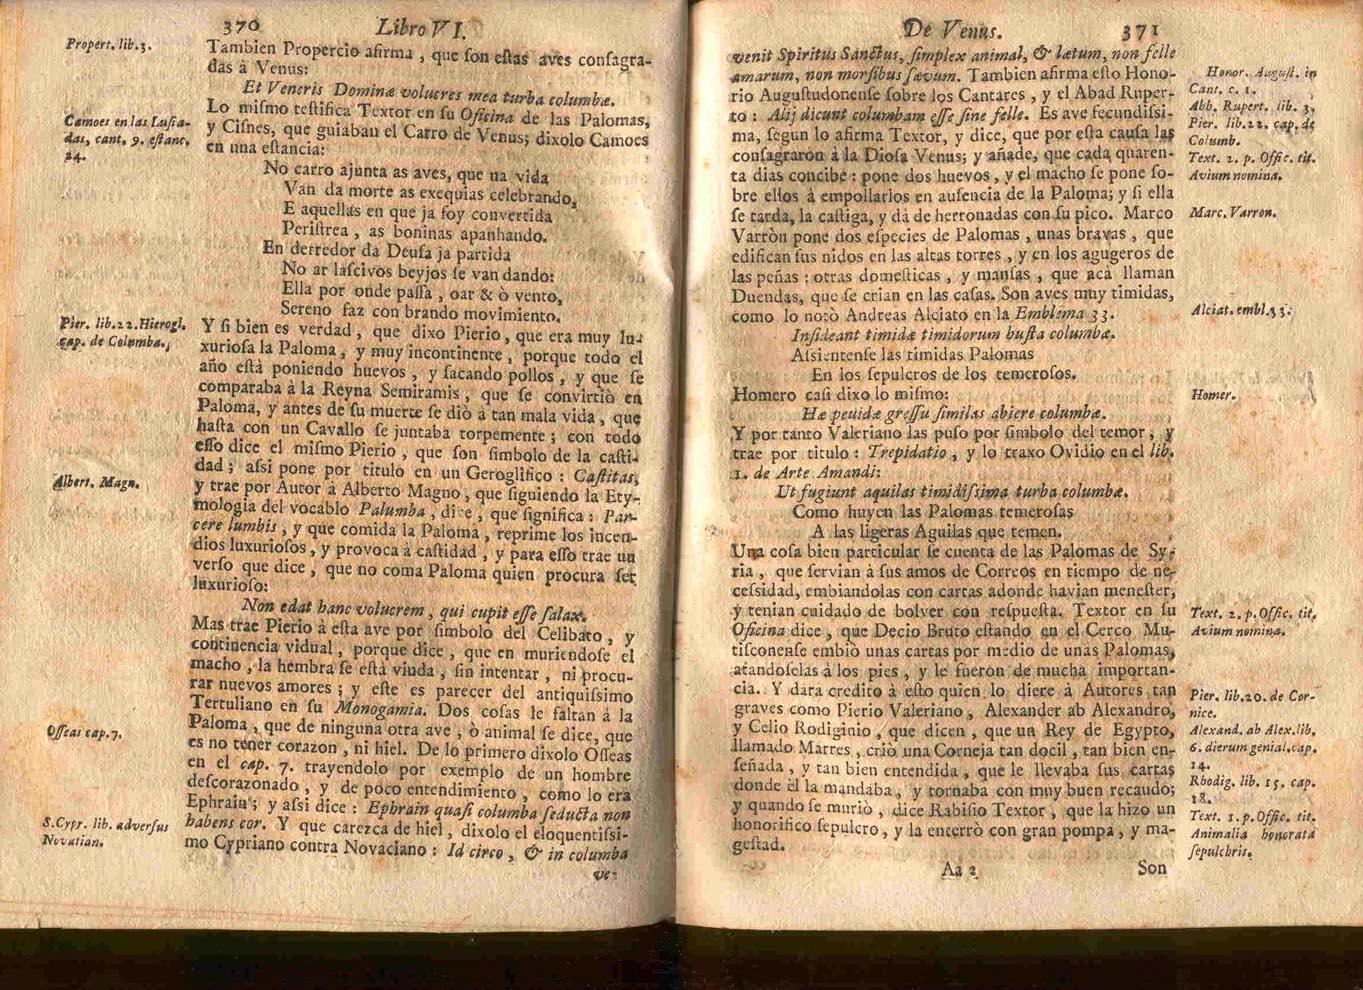 370 Libro VI.
Propert. lib. 3.
Tambien Propercio afirma, que ſon eſtas aves conſagra-
das à Venus:
Et Veneris Dominæ volucres mea turba columbæ.
Lo miſmo teſtifica Textor en ſu Oficina de las Palomas,
Camoes en las Luſia-
das, cant. 9. eſtanc.
24.
y Ciſnes, que guiaban el Carro de Venus; dixolo Camoes
en una eſtancia:
No carro ajunta as aves, que na vida
Van da morte as exequias celebrando,
E aquellas en que ja foy convertida
Periſtrea, as boninas apanhando.
En derredor da Deuſa ja partida
No ar laſcivos beyjos ſe van dando:
Ella por onde paſſa, oar & ò vento,
Sereno faz con brando movimiento.
Pier. lib. 22. Hierogl.
cap. de Columba.
Y ſi bien es verdad, que dixo Pierio, que era muy lu-
xurioſa la Paloma, y muy incontinente, porque todo el
año eſtà poniendo huevos, y ſacando pollos, y que ſe
comparaba à la Reyna Semiramis, que ſe convirtiò en
Paloma, y antes de ſu muerte ſe diò à tan mala vida, que
haſta con un Cavallo ſe juntaba torpemente; con todo
eſſo dice el miſmo Pierio, que ſon ſimbolo de la caſti-
dad; aſsi pone por titulo en un Geroglifico: Caſtitas,
Albert. Magn.
y trae por Autor à Alberto Magno, que ſiguiendo la Ety-
mologia del vocablo Palumba, dice, que ſignifica: Par-
cere lumbis, y que comida la Paloma, reprime los incen-
dios luxurioſos, y provoca à caſtidad, y para eſſo trae un
verſo que dice, que no coma Paloma quien procura ſer
luxurioſo:
Non edat hanc volucrem, qui cupit eſſe ſalax.
Mas trae Pierio à eſta ave por ſimbolo del Celibato, y
continencia vidual, porque dice, que en muriendoſe el
macho, la hembra ſe eſtà viuda, ſin intentar, ni procu-
rar nuevos amores; y eſte es parecer del antiquiſsimo
Tertuliano en ſu Monogamia. Dos coſas le faltan à la
Oſſeas cap. 7.
Paloma, que de ninguna otra ave, ò animal ſe dice, que
es no tener corazon, ni hiel. De lo primero dixolo Oſſeas
en el cap. 7. trayendolo por exemplo de un hombre
deſcorazonado, y de poco entendimiento, como lo era
Ephrain; y aſsi dice: Ephrain quaſi columba ſeducta non
S. Cypr. lib. adverſus
Novatian.
habens cor. Y que carezca de hiel, dixolo el eloquentiſsi-
mo Cypriano contra Novaciano: Id circo, & in columba
ve-
De Venus. 371
venit Spiritus Sanctus, ſimplex animal, & lætum, non felle
amarum, non morſibus ſævum. Tambien afirma eſto Hono-
rio Auguſtudonenſe ſobre los Cantares, y el Abad Ruper-
to: Alij dicunt columbam eſſe ſine felle. Es ave fecundiſsi-
ma, ſegun lo afirma Textor, y dice, que por eſta cauſa las
conſagraron à la Dioſa Venus; y añade, que cada quaren-
ta dias concibe: pone dos huevos, y el macho ſe pone ſo-
bre ellos à empollarlos en auſencia de la Paloma; y ſi ella
ſe tarda, la caſtiga, y dà de herronadas con ſu pico. Marco
Varròn pone dos eſpecies de Palomas, unas bravas, que
edifican ſus nidos en las altas torres, y en los agugeros de
las peñas: otras domeſticas, y manſas, que acà llaman
Duendas, que ſe crian en las caſas. Son aves muy timidas,
como lo notò Andreas Alciato en la Emblema 33.
Inſideant timidæ timidorum buſta columbæ.
Aſsientenſe las timidas Palomas
En los ſepulcros de los temeroſos.
Homero caſi dixo lo miſmo:
Hæ peuidæ greſſu ſimilas abiere columbæ.
Y por tanto Valeriano las puſo por ſimbolo del temor, y
trae por titulo: Trepidatio, y lo traxo Ovidio en el lib.
1. de Arte Amandi:
Ut fugiunt aquilas timidiſsima turba columbæ.
Como huyen las Palomas temeroſas
A las ligeras Aguilas que temen.
Una coſa bien particular ſe cuenta de las Palomas de Sy-
ria, que ſervian à ſus amos de Correos en tiempo de ne-
ceſsidad, embiandolas con cartas adonde havian meneſter,
y tenian cuidado de bolver con reſpueſta. Textor en ſu
Oficina dice, que Decio Bruto eſtando en el Cerco Mu-
tiſconenſe embiò unas cartas por medio de unas Palomas,
atandoſelas à los pies, y le fueron de mucha importan-
cia. Y dara credito à eſto quien lo diere à Autores tan
graves como Pierio Valeriano, Alexander ab Alexandro,
y Celio Rodiginio, que dicen, que un Rey de Egypto,
llamado Marres, criò una Corneja tan docil, tan bien en-
ſeñada, y tan bien entendida, que le llevaba ſus cartas
donde èl la mandaba, y tornaba con muy buen recaudo;
y quando ſe muriò, dice Rabiſio Textor, que la hizo un
honorifico ſepulcro, y la encerrò con gran pompa, y ma-
geſtad.
Aa 2 Son
Honor. Auguſt. in
Cant. c. 1.
Abb. Rupert. lib. 3.
Pier. lib. 22. cap. de
Columb.
Text. 2. p. Offic. tit.
Avium nomina.
Marc. Varron.
Alciat. embl. 33.
Homer.
Text. 2. p. Offic. tit.
Avium nomina.
Pier. lib. 20. de Cor-
nice.
Alexand. ab Alex. lib.
6. dierum genial. cap.
14.
Rhodig. lib. 15. cap.
18.
Text. 1. p. Offic. tit.
Animalia honorata
ſepulchris.